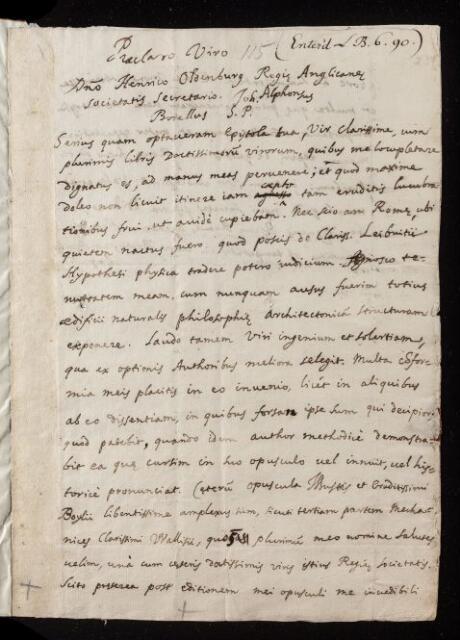 Præclaro Viro 115 (Enter'd L. B. 6. 90.)
Dño Henrico Oldenburg Regiæ Anglicanæ
Societatis Secretario. Joh. Alphonsus
Borellus S. P.
Serius quam optaveram Epistola tua, Vir Clarissime, una
plurimis libris doctissimorũ virorum, quibus me locupletare
dignatus es, ad manus meas pervenere; et quod maxime
doleo non licuit itinere iam cæpto tam eruditis lucubra
tionibus frui ut avidè cupiebam. Nec scio an Romæ, ubi
quietem nactus fuero, quod poscis de Clariss. Leibnitii
Hypothesi physica tradere potero iudicium. Agnosco te-
nuitatem meam, cum nunquam ausus fuerim totius
ædificii naturalis philosophiæ architectonicã structuram
exponere. Laudo tamen Viri ingenium et solertiam,
qua ex optimis Authoribus meliora selegit. Multa cõfor
mia meis placitis in eo invenio, licèt in aliquibus
ab eo dissentiam, in quibus forsan ipse sum qui decipior
quod patebit, quando idem author methodicè demonstra-
bit ea quæ cursim in hoc opusculo vel innuit, vel his-
toricè pronunciat. Cæterũ opuscula Illustris et Eruditissimi
Boylii libentissime amplexus sum, sicuti tertiam partem Mechani
nices Clarissimi Wallisii, quos plurimũ meo nomine salutes
velim, unà cum cæteris doctissimis viris istius Regiæ Societatis.
Scito præterea post editionem mei opusculi me incredibili